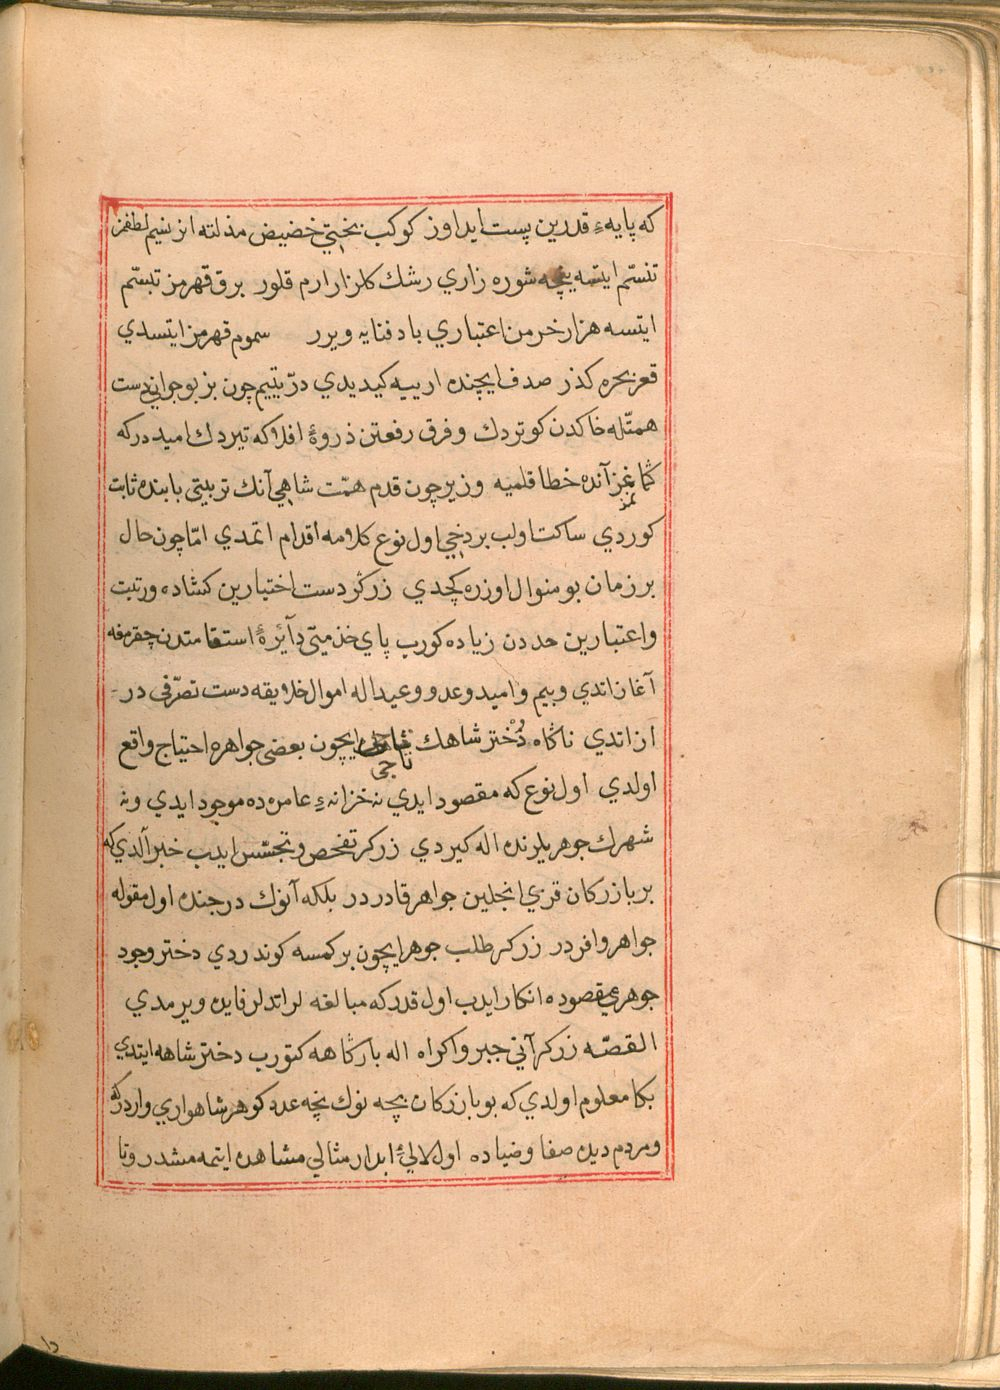 كه پايهٔ قدرين پست ايدا وز كوكب بختي خضيض مذلته انر نسيم لطفمز
تنسّم ايتسه يچه شوره زاري رشك كلزار ارم قلور برق قهرمز تبسّم
ايتسه هزار خرمن اعتباري باد فنايه ويرر سموم قهرمز ايتسدي
قعر بحره كذر صدف ايچنده ارييه كيديدي درّ يتيم چون بز بو جواني دست
همتله خاكدن كوتردك وفرق رفعتن ذروۀ افلاكه تيردك اميد در كه
كمانمز آنده خطا قلميه وزير چون قدم همّت شاهي آنك تربيتي بابنده ثابت
كوردي ساكت اولب بر دخي اول نوع كلامه اقدام اتمدي امّا چون حال
بر زمان بو منوال اوزره كچدي زركر دست اختيارين كشاده ورتبت
واعتبارين حددن زياده كورب پاي خذمتي دآئرۀ استقامتدن چقرمغه
آغاز اتدي وبيم واميد وعد و وعيد اله اموال خلايقه دست تصرّفي در
از اتدي ناكاه دُخْتر شاهك تاجى ايچون بعضى جواهره احتياج واقع
اولدي اول نوع كه مقصود ايدي نه خزانهٔ عامره ده موجود ايدي ونه
شهرك جوهريلرنده اله كيردي زركر تفحص وتجسّس ايدب خبر آلدي كه
بر بازركان قزي انجلين جواهر قادر در بلكه آنوك درجنده اول مقوله
جواهر وافردر زركر طلب جوهر ايچون بر كمسه كوندردي دختر وجود
جوهري مقصوده انكار ايدب اول قدر كه مبالغه لر اتدلر فايده ويرمدي
القصّه زركر آني جبر واكراه اله باركاهه كتورب دختر شاهه ايتدي
بكا معلوم اولدي كه بو بازركان بچه نوك نچه عدد كوهر شاهواري واردر كه
ومردم ديده صفا وضياده اول لالئ ابدار مثالي مشاهده ايتمه مشدر وتا